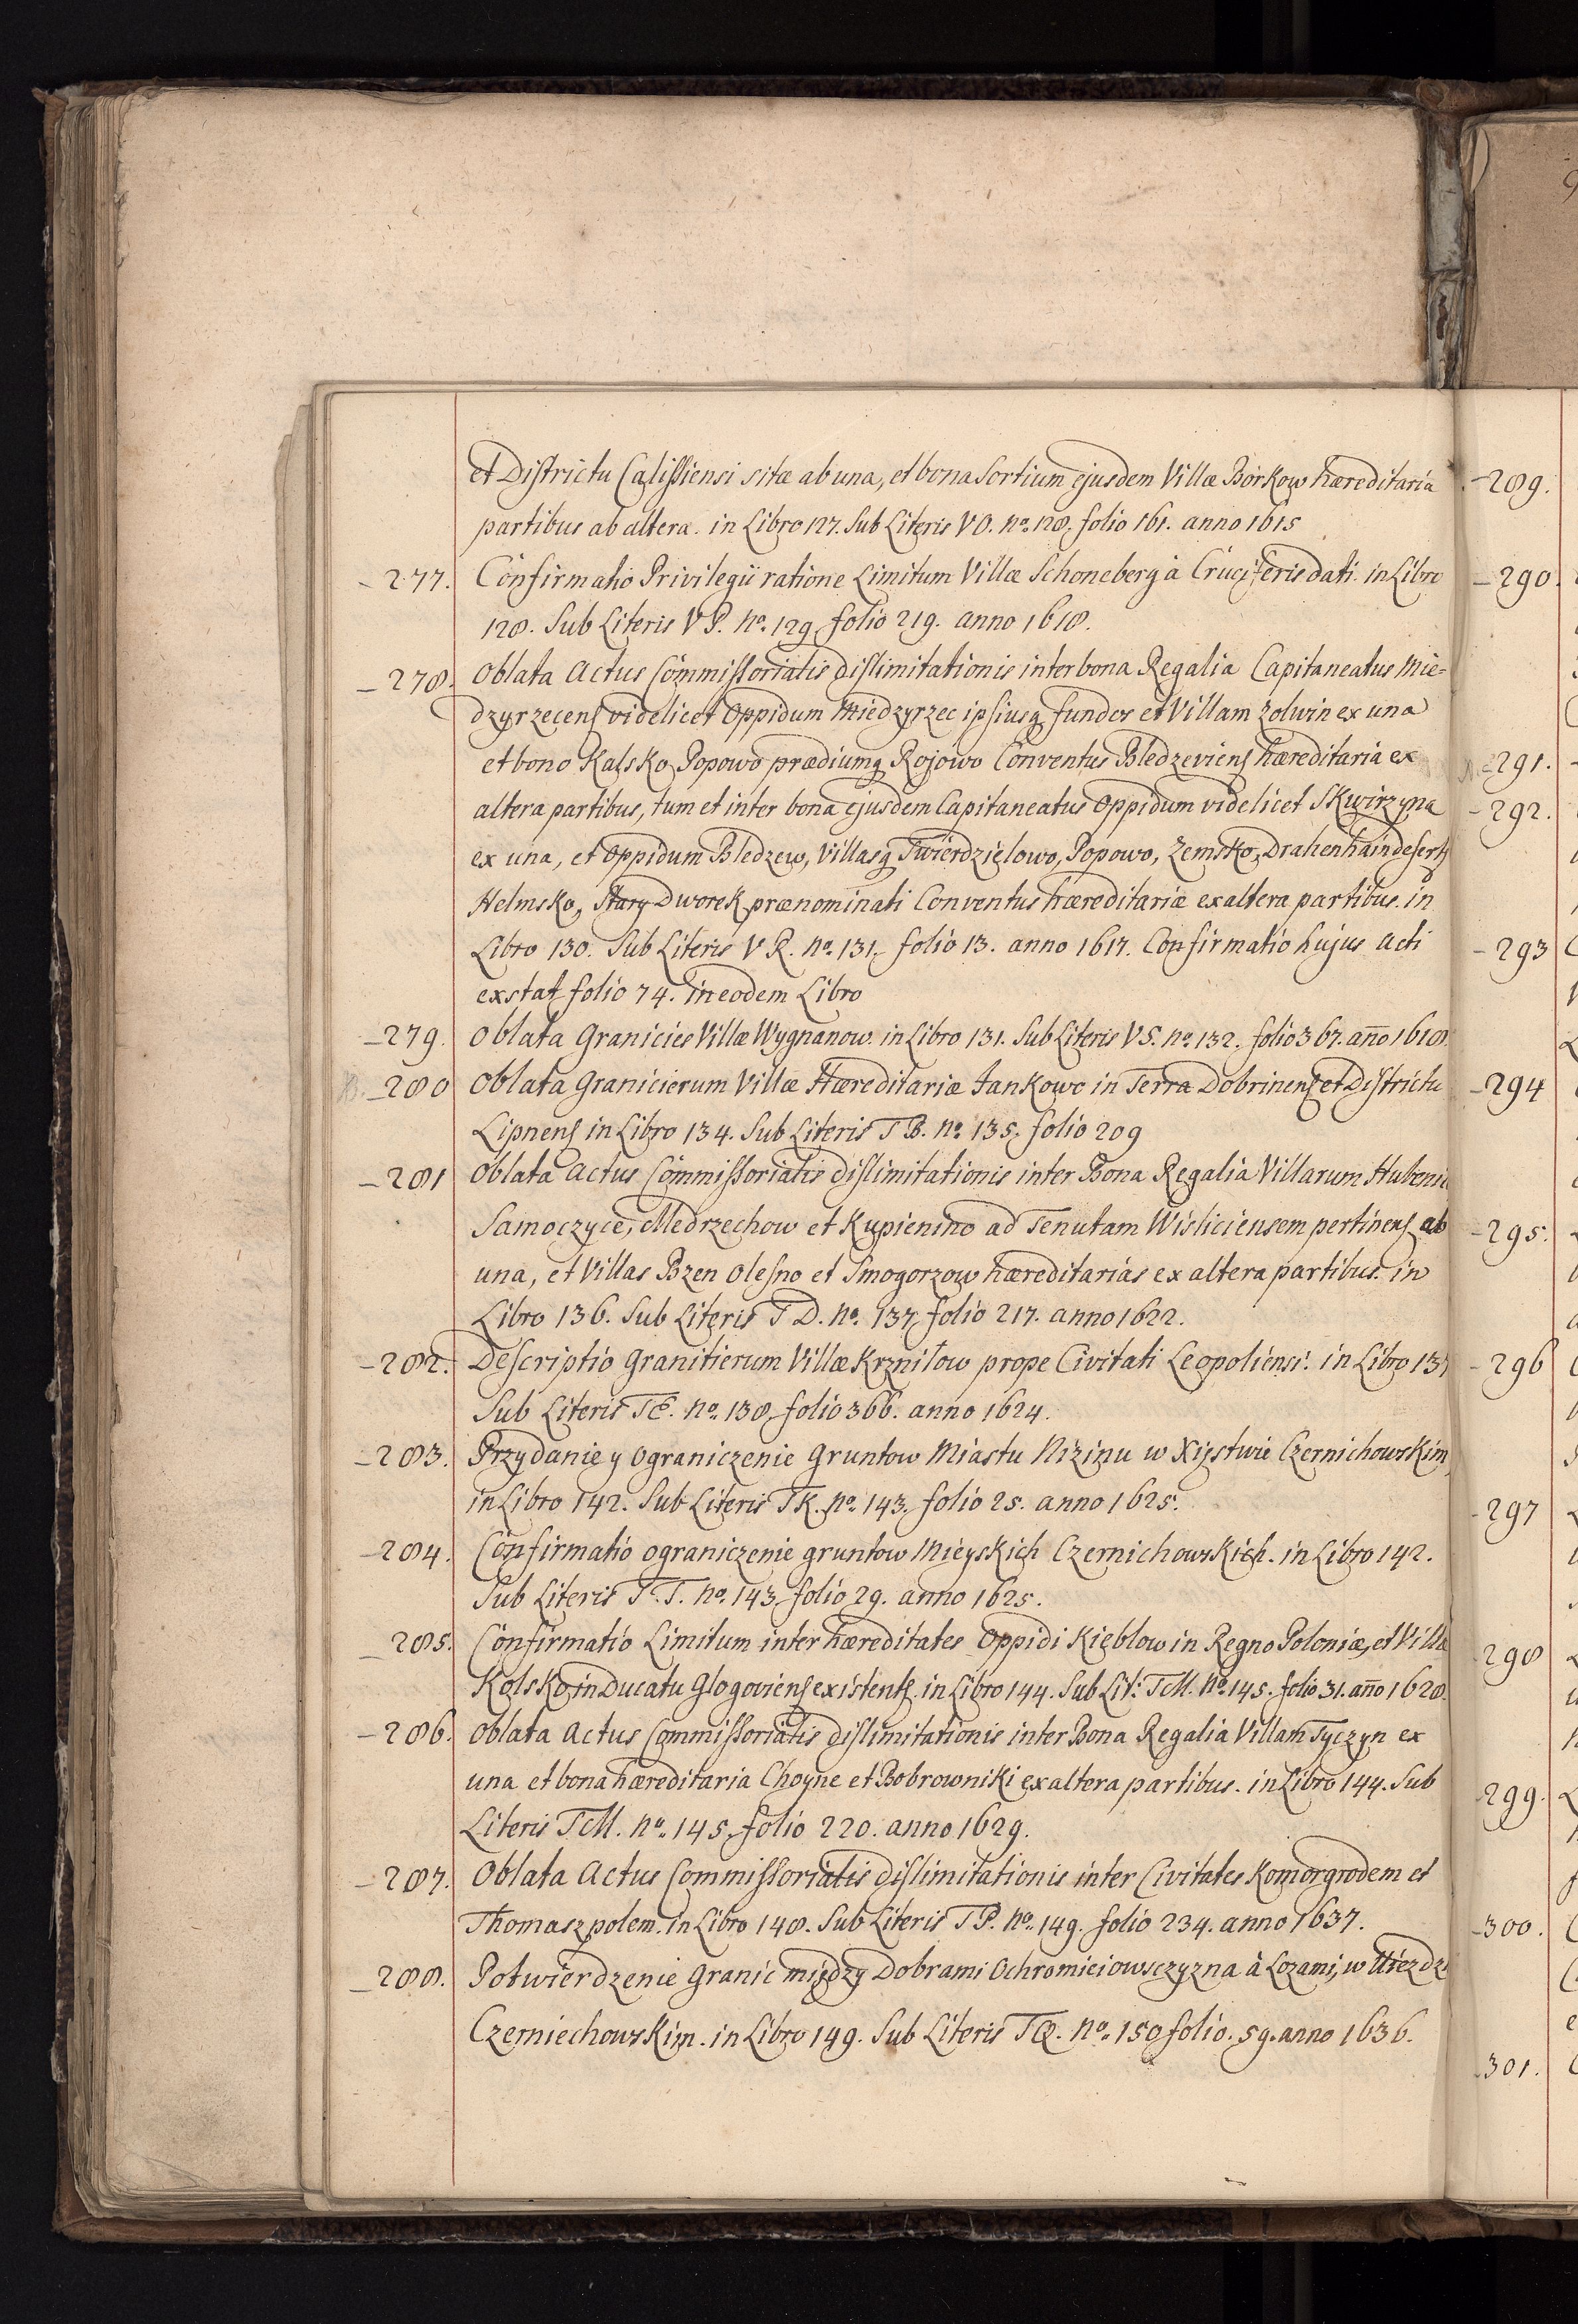 et Districtu Calissiensi sitæ ab una, et bona Sortium ejusdem Villæ Borkow hæreditaria
partibus ab altera. in Libro 127. Sub Literis VO. No. 128. folio 161. anno 1615
277. Confirmatio Privilegii ratione Limitum Villæ Schoneberg à Cruciferis dati. in Libro
128. Sub Literis VP. No. 129 folio 219. anno 1618.
278. Oblata Actus Commissorialis dislimitationis inter bona Regalia Capitaneatus Mie=
dzyrzecens videlicet Oppidum Miedzyrzec ipsiusq fundos et Villam Zolwin ex una
et bono Kalsko, Popowo prædiumq Rojowo Conventus Bledzeviens hæreditaria ex
altera partibus, tum et inter bona ejusdem Capitaneatus Oppidum videlicet Skwirzyna
ex una, et Oppidum Bledzew, Villasq Twierdzielowo, Popowo, Zemsko, Drahenhain desert
Helmsko, Stary Dworek prænominati Conventus hæreditariæ ex altera partibus. in
Libro 130. Sub Literis VR. No. 131. folio 13. anno 1617. Confirmatio hujus Acti
exstat folio 74. in eodem Libro
279. Oblata Granicies Villæ Wygnanow. in Libro 131. Sub Literis VS. No. 132. folio 367. año 1618.
280 Oblata Granicierum Villæ Hæreditariæ Jankowo in Terra Dobrinens et Districtu
Lipnens in Libro 134. Sub Literis TB. No. 135. folio 209
281 Oblata Actus Commissorialis dislimitationis inter Bona Regalia Villarum Hubenic
Samoczyce, Medrzechow et Kupienino ad Tenutam Wisliciensem pertinens ab
una, et Villas Bzen Olesno et Smogorzow hæreditarias ex altera partibus. in
Libro 136. Sub Literis TD. No. 137. folio 217. anno 1622.
282. Descriptio Granitierum Villæ Krznilow prope Civitati Leopoliensi. in Libro 137
Sub Literis TE. No. 138. folio 366. anno 1624.
283. Przydanie y Ograniczenie Gruntow Miastu Nizinu w Xięstwie Czernichowskim,
in Libro 142. Sub Literis TK. No. 143. folio 25. anno 1625.
284. Confirmatio ograniczenie gruntow Mieyskich Czernichowskich. in Libro 142.
Sub Literis T.T. No. 143. folio 29. anno 1625.
285. Confirmatio Limitum inter hæreditates Oppidi Kięblow in Regno Poloniæ, et Villa
Kolsko in Ducatu Glogoviens existents. in Libro 144. Sub Lit: TM. No. 145. folio 31. año 1628.
286. Oblata Actus Commissorialis dislimitationis inter Bona Regalia Villam Tyczyn ex
una et bona hæreditaria Choyne et Bobrowniki ex altera partibus. in Libro 144. Sub
Literis TM. No. 145. folio 220. anno 1629.
287. Oblata Actus Commissorialis dislimitationis inter Civitates Komorgrodem et
Thomaszpolem. in Libro 148. Sub Literis TP. No. 149. folio 234. anno 1637.
288. Potwierdzenie Granic między Dobrami Ochromiciowsczyzna à Lozami, w Uiezdzi
Czerniechowskim. in Libro 149. Sub Literis TQ. No. 150 folio. 59. anno 1636.
289.
290.
291.
292.
293
294
295.
296
297
298
299.
300.
301.